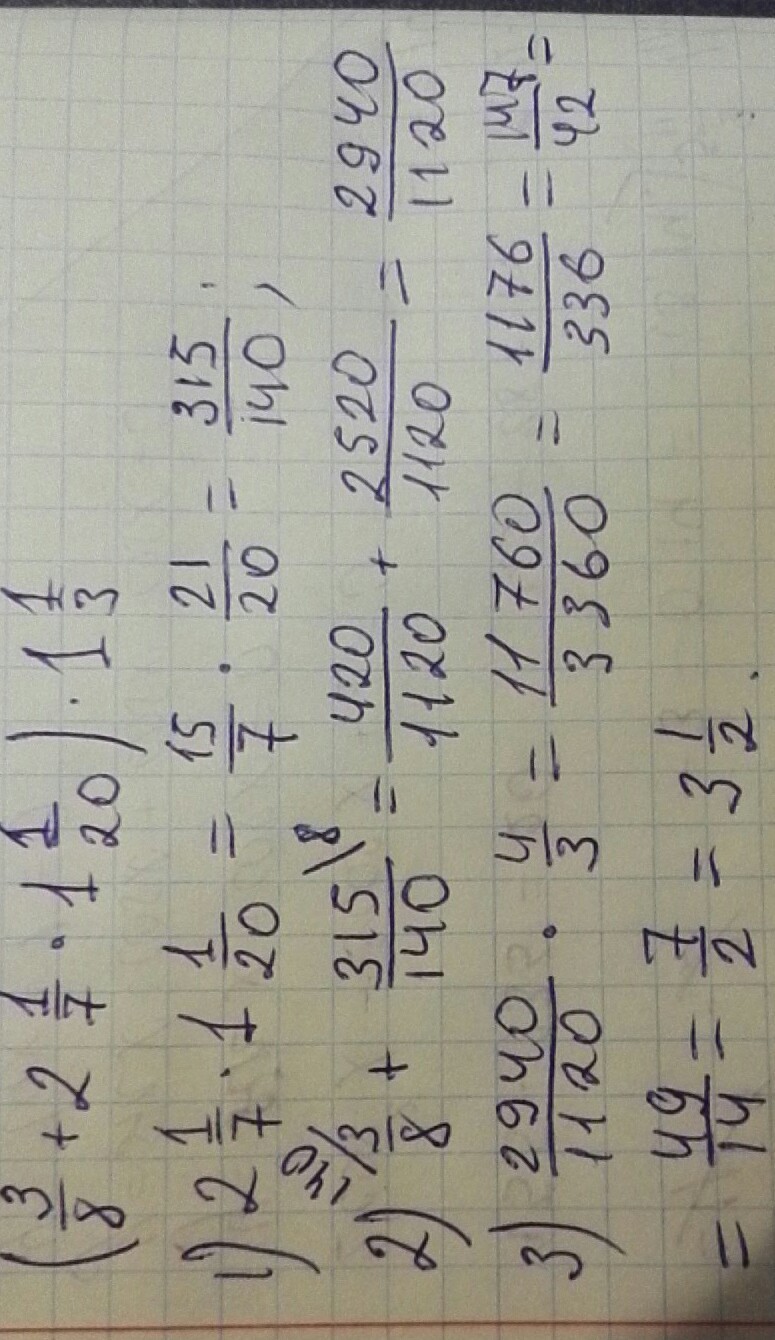 (3/8 + 2 1/7 · 1 1/20) · 1 1/3
1) 2 1/7 · 1 1/20 = 15/7 · 21/20 = 315/140;
2) 140/ 3/8 + 315/140 \8 = 420/1120 + 2520/1120 = 2940/1120
3) 2940/1120 · 4/3 = 11760/3360 = 1176/336 = 147/42 =
= 49/14 = 7/2 = 3 1/2.